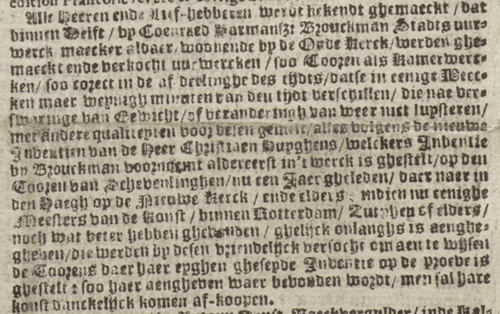 Alle Heeren ende Lief-hebberen werdt bekendt ghemaeckt / dat
binnen Delft / by Coenraed Harmansz Brouckman Stadts uur-
werck maecker aldaer, woonende by de Oude Kerck / werden ghe-
maeckt ende verkocht uurwercken / soo Tooren als Kamerwerc-
ken / soo correct in de af-deelinghe des tijdts / datse in eenige Weec-
ken maer weynigh minuten van den tijdt verschillen / die nae ver-
swaringe van Gewicht / of veranderingh van weer niet luysteren /
met andere qualiteyten voor desen gemelt / alles volgens de nieuwe
Inventien van de Heer Christiaen Huyghens / welckers Inventie
by Brouckman voornoemt aldereerst in't werck is ghestelt / op den
Tooren van Schevenlinghen / nu een Jaer gheleden / daer naer in
den Haegh op de Nieuwe Kerck / ende elders: indien nu eenighe
Meesters van de Konst / binnen Rotterdam / Zutphen of elders /
noch wat beter hebben ghevonden / ghelijck onlanghs is aenghe-
gheven / die werden by desen vriendelijck versocht om aen te wijsen
de Toorens daer haer eyghen gheseyde Inventie op de proeve is
ghestelt: soo haer aengheven waer bevonden wordt / men sal hare
konst danckelijck komen af-koopen.